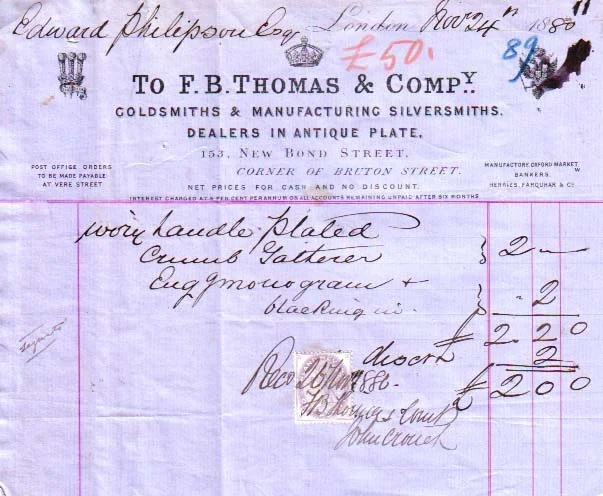 Edward Philipson Esq London Novr 24th 1880
£50. 89
TO F. B. THOMAS & COMPY.
GOLDSMITHS & MANUFACTURING SILVERSMITHS.
DEALERS IN ANTIQUE PLATE,
153, NEW BOND STREET,
CORNER OF BRUTON STREET.
POST OFFICE ORDERS
TO BE MADE PAYABLE
AT VERE STREET
MANUFACTORY, OXFORD MARKET W
BANKERS,
HERRIES, FARQUHAR & Co
NET PRICES FOR CASH AND NO DISCOUNT.
INTEREST CHARGED AT 5 PER CENT PER ANNUM ON ALL ACCOUNTS REMAINING UNPAID AFTER SIX MONTHS
Ivory handle plated
Crumb Gatherer } 2 —
Engg monogram &
blacking in } " 2
£ 2 2 0
discount 2
£ 2 0 0
Recd 26 Novr 1880.
FB Thomas & Comp
John Crouch